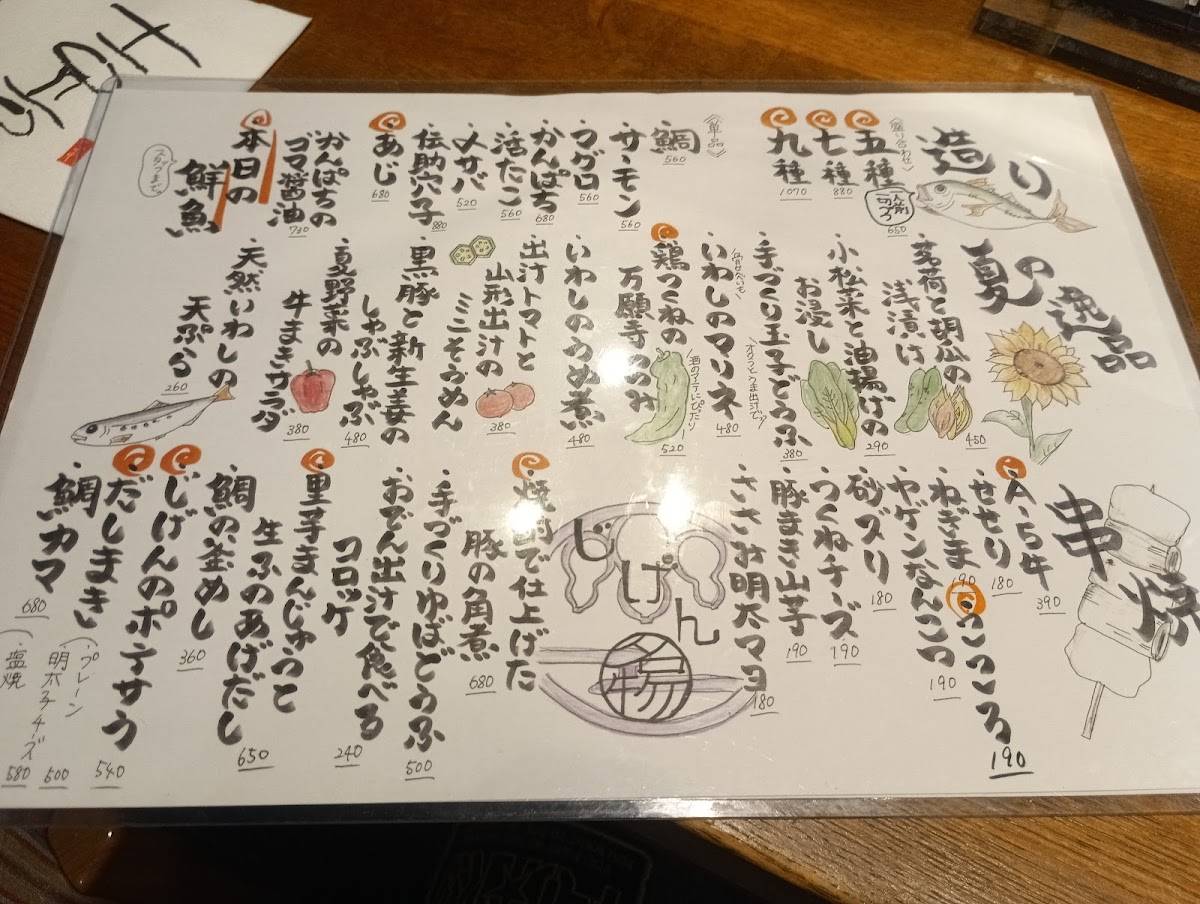 造り
《盛り合わせ》
五種
一人前
一切れづつ
650
七種
880
九種
1070
《単品》
鯛
560
サーモン
560
マグロ
560
かんぱち
680
活たこ
560
〆サバ
520
伝助穴子
880
あじ
680
かんぱちの
ゴマ醤油
730
本日の
鮮魚
スタッフまで♪
夏の逸品
茗荷と胡瓜の
浅漬け
450
小松菜と油揚げの
お浸し
290
手づくり玉子どうふ
オクラとうま出汁で♪
380
いわしのマリネ
480
鶏つくねの
万願寺つつみ
酒のアテにぴったり!
520
いわしのうめ煮
480
出汁トマトと
山形出汁の
ミニそうめん
380
黒豚と新生姜の
しゃぶしゃぶ
480
夏野菜の
牛まきサラダ
380
天然いわしの
天ぷら
260
串焼
A-5牛
390
せせり
180
ねぎま
190
こころ
190
ヤゲンなんこつ
190
砂ズリ
180
つくねチーズ
190
豚まき山芋
190
ささみ明太マヨ
180
じげん
焼酎で仕上げた
豚の角煮
680
手づくりゆばどうふ
500
おでん出汁で食べる
コロッケ
240
里芋まんじゅうと
生ふのあげだし
650
鯛の釜めし
360
じげんのポテサラ
540
だしまき
(プレーン
500
明太子チーズ
580
鯛カマ
680
(塩焼